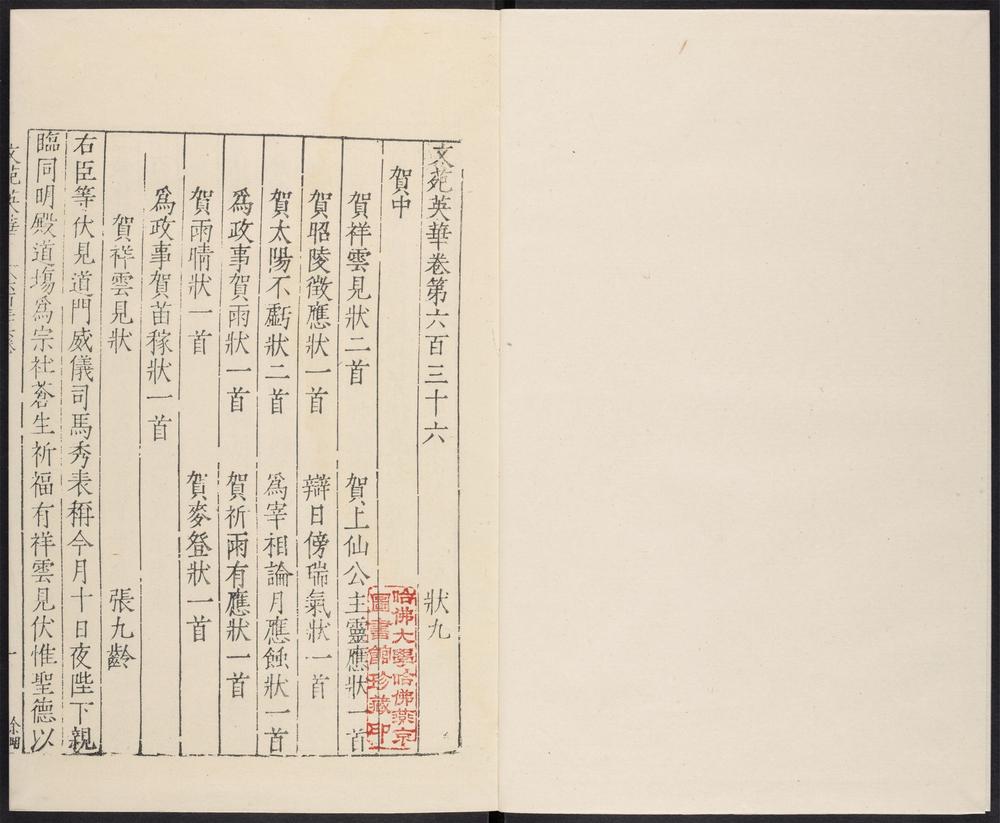 文苑英華卷第六百三十六　狀九
賀中
賀祥雲見狀二首　賀上仙公主靈應狀一首
賀昭陵徵應狀一首　辯日傍瑞氣狀一首
賀太陽不虧狀二首　為宰相論月應蝕狀一首
爲政事賀雨狀一首　賀祈雨有應狀一首
賀雨晴狀一首　賀麥登狀一首
爲政事賀苗稼狀一首
賀祥雲見狀　張九齡
右臣等伏見道門威儀司馬秀表稱今月十日夜陛下親
臨同明殿道塲爲宗社蒼生祈福有祥雲見伏惟聖德以
文苑英華
一
哈佛大學哈佛燕京
圖書館珍藏印